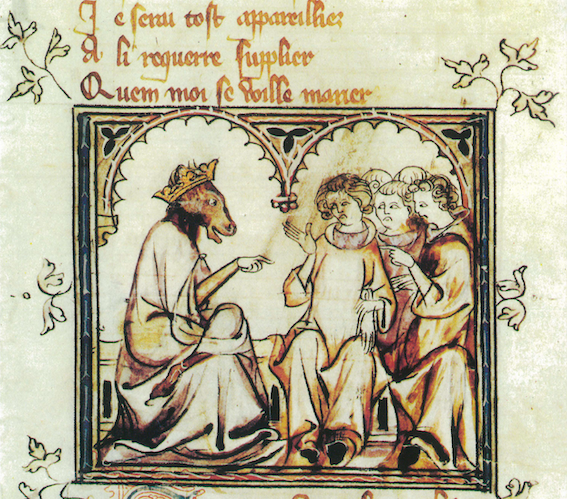 Je serai tost appareillier
A li requerre supplier
Quem moi se voille marier